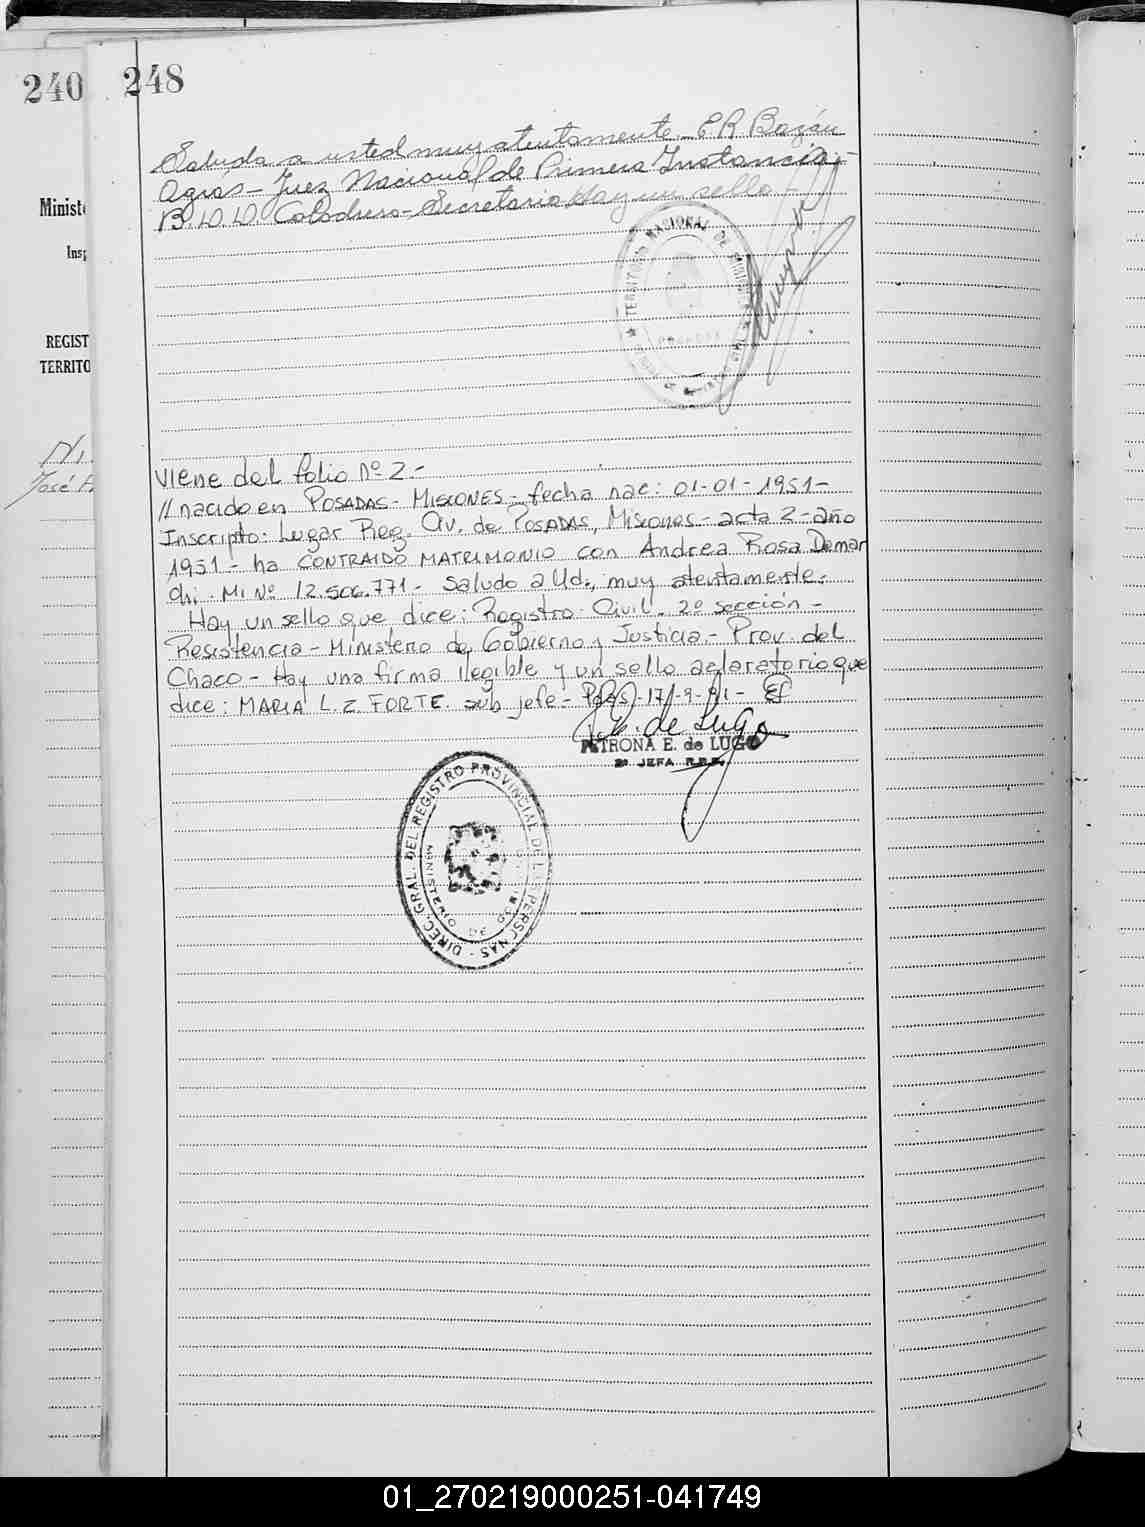 240
248
Saluda a usted muy atentamente. E R Bazán
Agrás - Juez Nacional de Primera Instancia -
B. D. D. - Secretario Hay un sello -
Minist
Ins
REGIST
TERRITO
TERRITORIO NACIONAL DE
POSADAS
José
Viene del folio Nº 2.-
// nacido en POSADAS - MISIONES - fecha nac: 01-01-1951-
Inscripto: Lugar Reg. Civ. de POSADAS, Misiones - acta 2 - año
1951 - ha CONTRAIDO MATRIMONIO con Andrea Rosa Demar
chi. MI Nº 12.506.771 - Saludo a Ud., muy atentamente.
Hay un sello que dice: Registro Civil. 2º sección -
Resistencia - Ministerio de Gobierno y Justicia - Prov. del
Chaco - Hay una firma ilegible y un sello aclaratorio que
dice: MARIA L. Z. FORTE. sub jefe - Pdas, 17-9-81-
de Lugo
PETRONA E. de LUGO
2ª JEFA R.P.P.
DIREC. GRAL. DEL REGISTRO PROVINCIAL DE LAS PERSONAS
MINISTERIO DE GOBIERNO
01_270219000251-041749